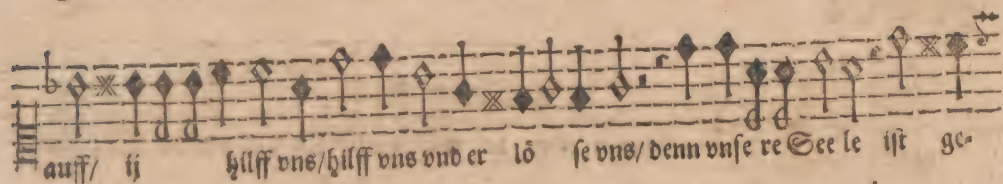 auff/ ij hilff vns/hilff vns vnd er lö ſe vns/ denn vnſe re See le iſt ge-